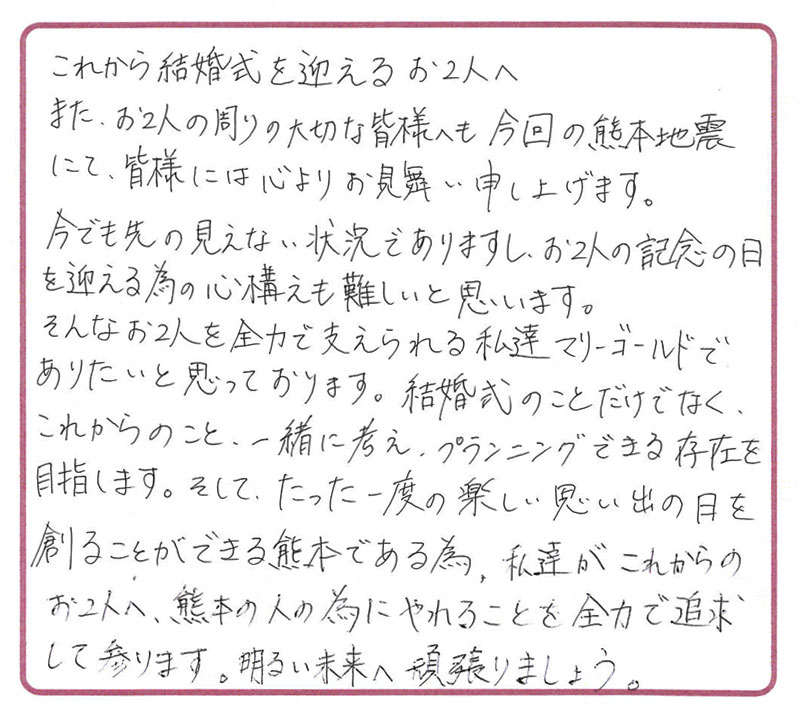 これから結婚式を迎えるお2人へ
また、お2人の周りの大切な皆様へも今回の熊本地震
にて、皆様には心よりお見舞い申し上げます。
今でも先の見えない状況でありますし、お2人の記念の日
を迎える為の心構えも難しいと思います。
そんなお2人を全力で支えられる私達マリーゴールドで
ありたいと思っております。結婚式のことだけでなく、
これからのこと、一緒に考え、プランニングできる存在を
目指します。そして、たった一度の楽しい思い出の日を
創ることができる熊本である為、私達がこれからの
お2人へ、熊本の人の為にやれることを全力で追求
して参ります。明るい未来へ頑張りましょう。